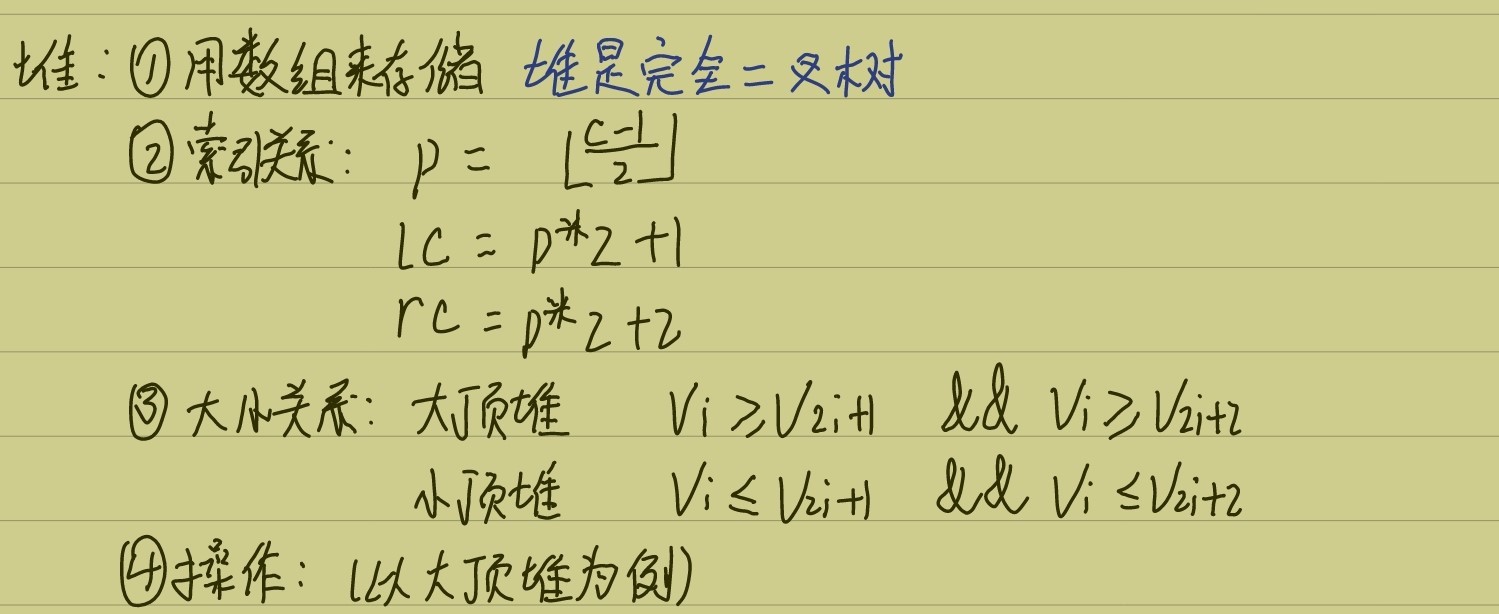 堆：①用数组来存储 堆是完全二叉树
②索引关系： p = ⌊(c-1)/2⌋
lc = p*2+1
rc = p*2+2
③大小关系：大顶堆 Vi ≥ V2i+1 && Vi ≥ V2i+2
小顶堆 Vi ≤ V2i+1 && Vi ≤ V2i+2
④操作：（以大顶堆为例）